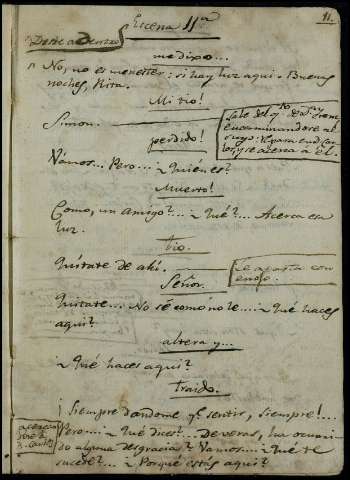 Escena 11ª
11.
Desde adentro
me dixo...
No, no es menester: si hay luz aqui. Buenas
noches, Rita.
Mi tio!
Simon.
Sale del qto de Dn Diego,
encaminandose al
suyo:
se acerca á él.
perdido!
Vamos... Pero... ¿Quién es?
Muerto!
Como, un amigo?... Qué?... Acerca esa
luz.
tio.
Quitate de ahí.
Le aparta con
enojo.
Señor.
Quitate... No sé como no le... ¿Qué haces
aqui?
altera y...
¿Qué haces aqui?
traido.
¡Siempre dandome qe sentir, siempre!...
acercan
dose á
D. Carlos
Pero... ¿Qué dices?... De veras, ha ocurri
do alguna desgracia? Vamos... ¿Qué te
sucede?... ¿Porqué estás aqui?